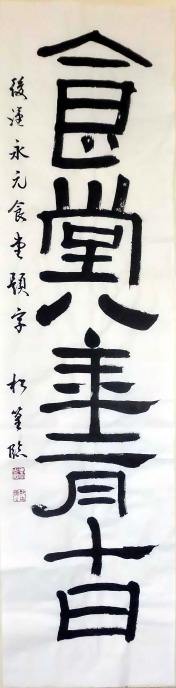 食堂八年二月十日
後漢永元食堂題字 松 臨